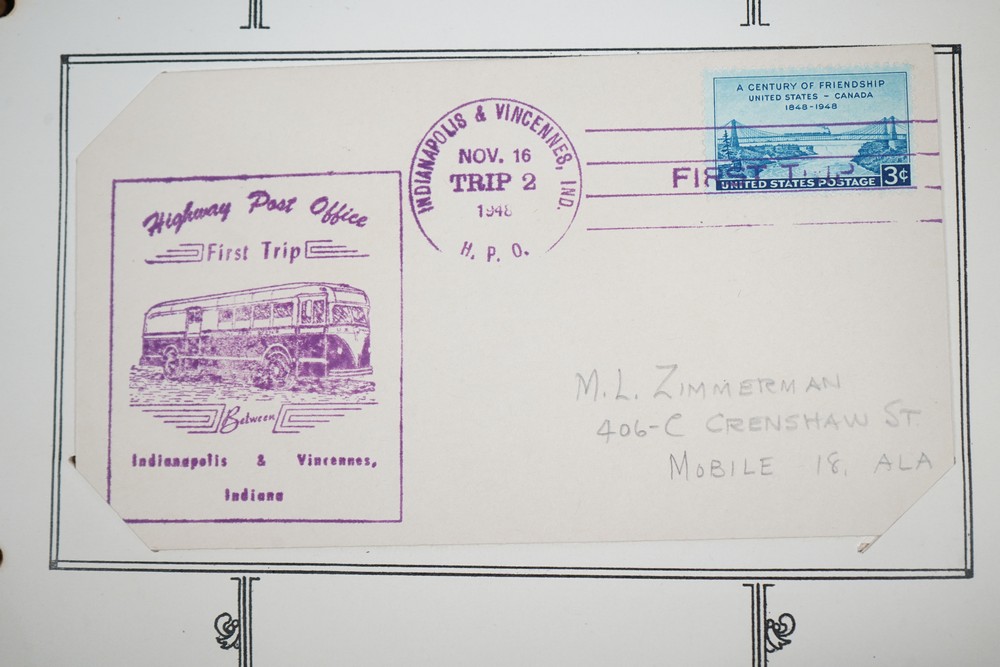 Highway Post Office
First Trip
Between
Indianapolis & Vincennes,
Indiana
INDIANAPOLIS & VINCENNES, IND.
NOV. 16
TRIP 2
1948
H. P. O.
A CENTURY OF FRIENDSHIP
UNITED STATES - CANADA
1848-1948
FIRST TRIP
UNITED STATES POSTAGE 3¢
M.L. ZIMMERMAN
406-C CRENSHAW ST.
MOBILE 18, ALA